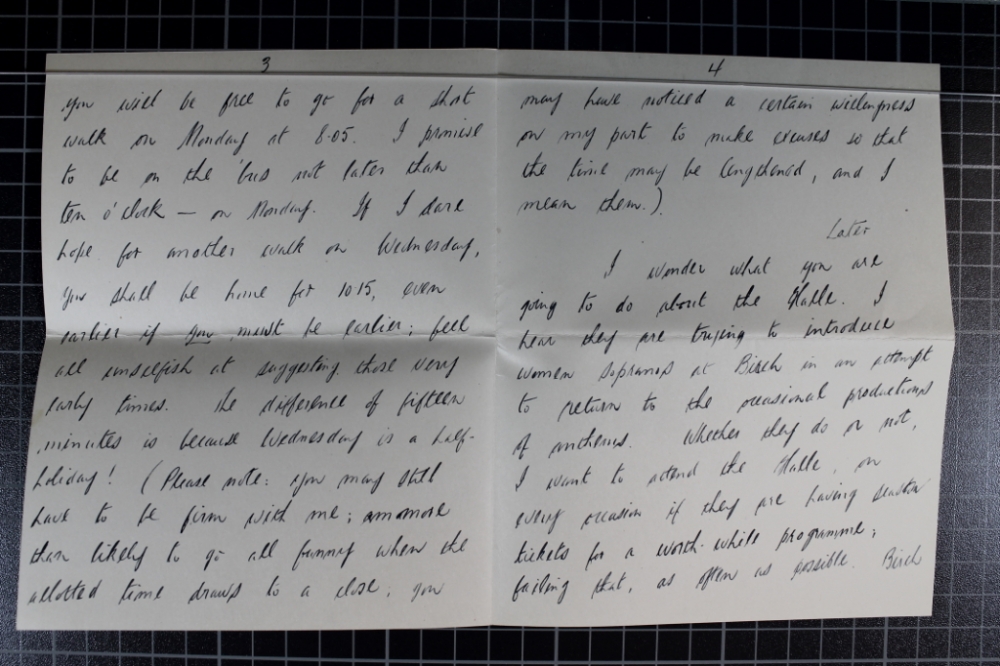 3
you will be free to go for a short
walk on Monday at 8.05. I promise
to be on the 'bus not later than
ten o'clock — on Monday. If I dare
hope for another walk on Wednesday,
you shall be home for 10.15, even
earlier if you must be earlier; feel
all unselfish at suggesting those very
early times. The difference of fifteen
minutes is because Wednesday is a half-
holiday! (Please note: you may still
have to be firm with me; am more
than likely to go all funny when the
allotted time draws to a close; you
4
may have noticed a certain willingness
on my part to make excuses so that
the time may be lengthened, and I
mean them.)
Later
I wonder what you are
going to do about the Halle. I
hear they are trying to introduce
women sopranos at Birch in an attempt
to return to the occasional productions
of anthems. Whether they do or not,
I want to attend the Halle, on
every occasion if they are having season
tickets for a worth-while programme;
failing that, as often as possible. Birch